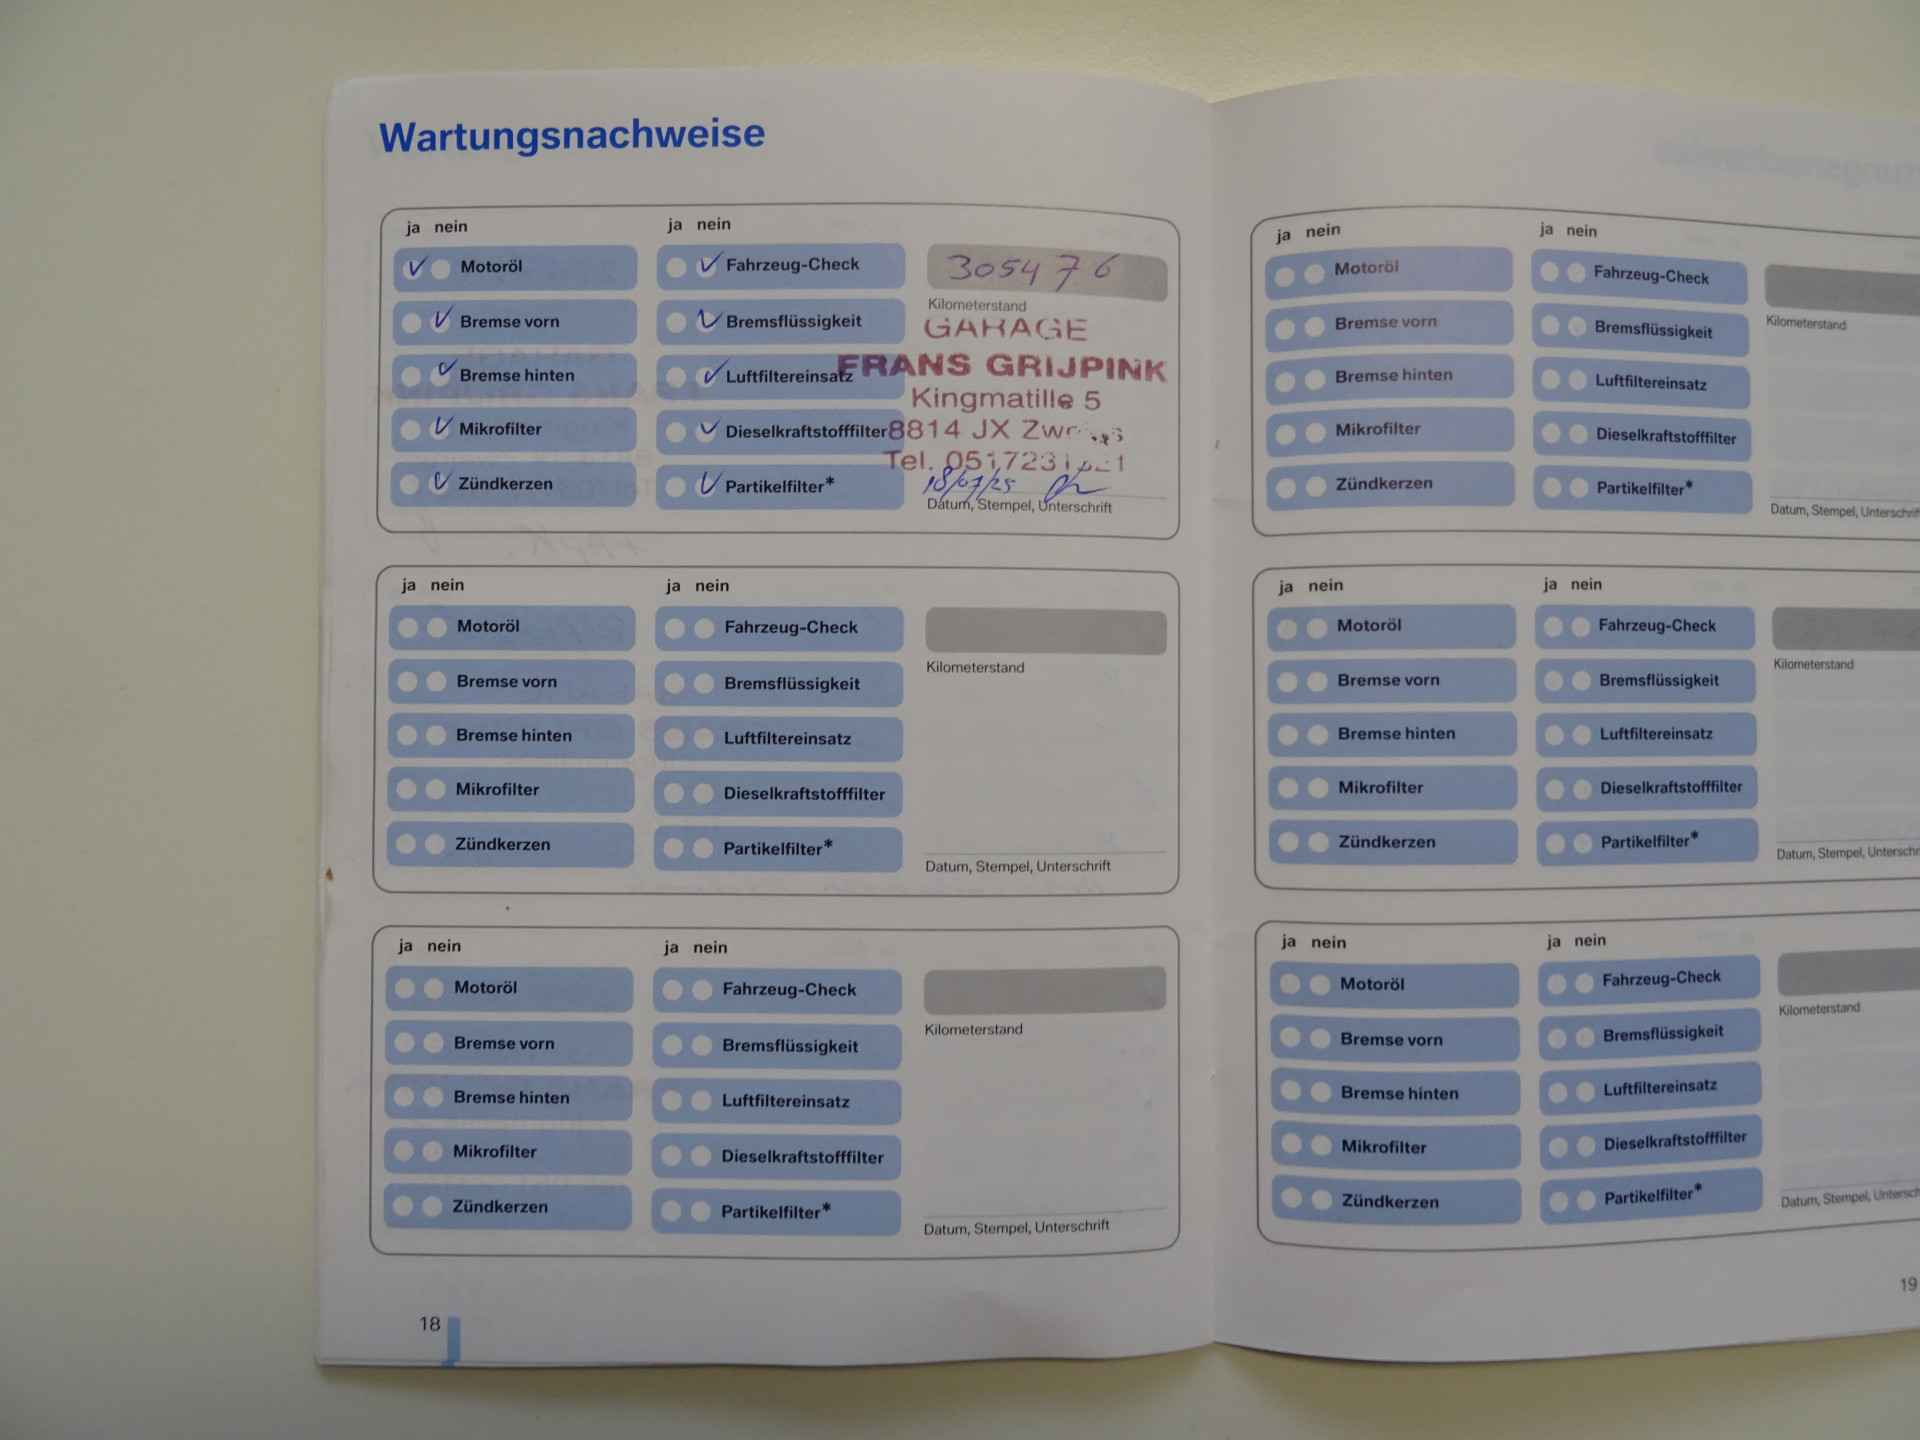 Wartungsnachweise
ja nein
Motoröl
Bremse vorn
Bremse hinten
Mikrofilter
Zündkerzen
ja nein
Fahrzeug-Check
Bremsflüssigkeit
Luftfiltereinsatz
Dieselkraftstofffilter
Partikelfilter*
305476
Kilometerstand
GARAGE
FRANS GRIJPINK
Kingmatille 5
8814 JX
Tel.
18/07/25
Datum, Stempel, Unterschrift
ja nein
Motoröl
Bremse vorn
Bremse hinten
Mikrofilter
Zündkerzen
ja nein
Fahrzeug-Check
Bremsflüssigkeit
Luftfiltereinsatz
Dieselkraftstofffilter
Partikelfilter*
Kilometerstand
Datum, Stempel, Unterschrift
ja nein
Motoröl
Bremse vorn
Bremse hinten
Mikrofilter
Zündkerzen
ja nein
Fahrzeug-Check
Bremsflüssigkeit
Luftfiltereinsatz
Dieselkraftstofffilter
Partikelfilter*
Kilometerstand
Datum, Stempel, Unterschrift
18
ja nein
Motoröl
Bremse vorn
Bremse hinten
Mikrofilter
Zündkerzen
ja nein
Fahrzeug-Check
Bremsflüssigkeit
Luftfiltereinsatz
Dieselkraftstofffilter
Partikelfilter*
Kilometerstand
Datum, Stempel, Unterschrift
ja nein
Motoröl
Bremse vorn
Bremse hinten
Mikrofilter
Zündkerzen
ja nein
Fahrzeug-Check
Bremsflüssigkeit
Luftfiltereinsatz
Dieselkraftstofffilter
Partikelfilter*
Kilometerstand
Datum, Stempel,
ja nein
Motoröl
Bremse vorn
Bremse hinten
Mikrofilter
Zündkerzen
ja nein
Fahrzeug-Check
Bremsflüssigkeit
Luftfiltereinsatz
Dieselkraftstofffilter
Partikelfilter*
Kilometerstand
Datum, Stempel,
19